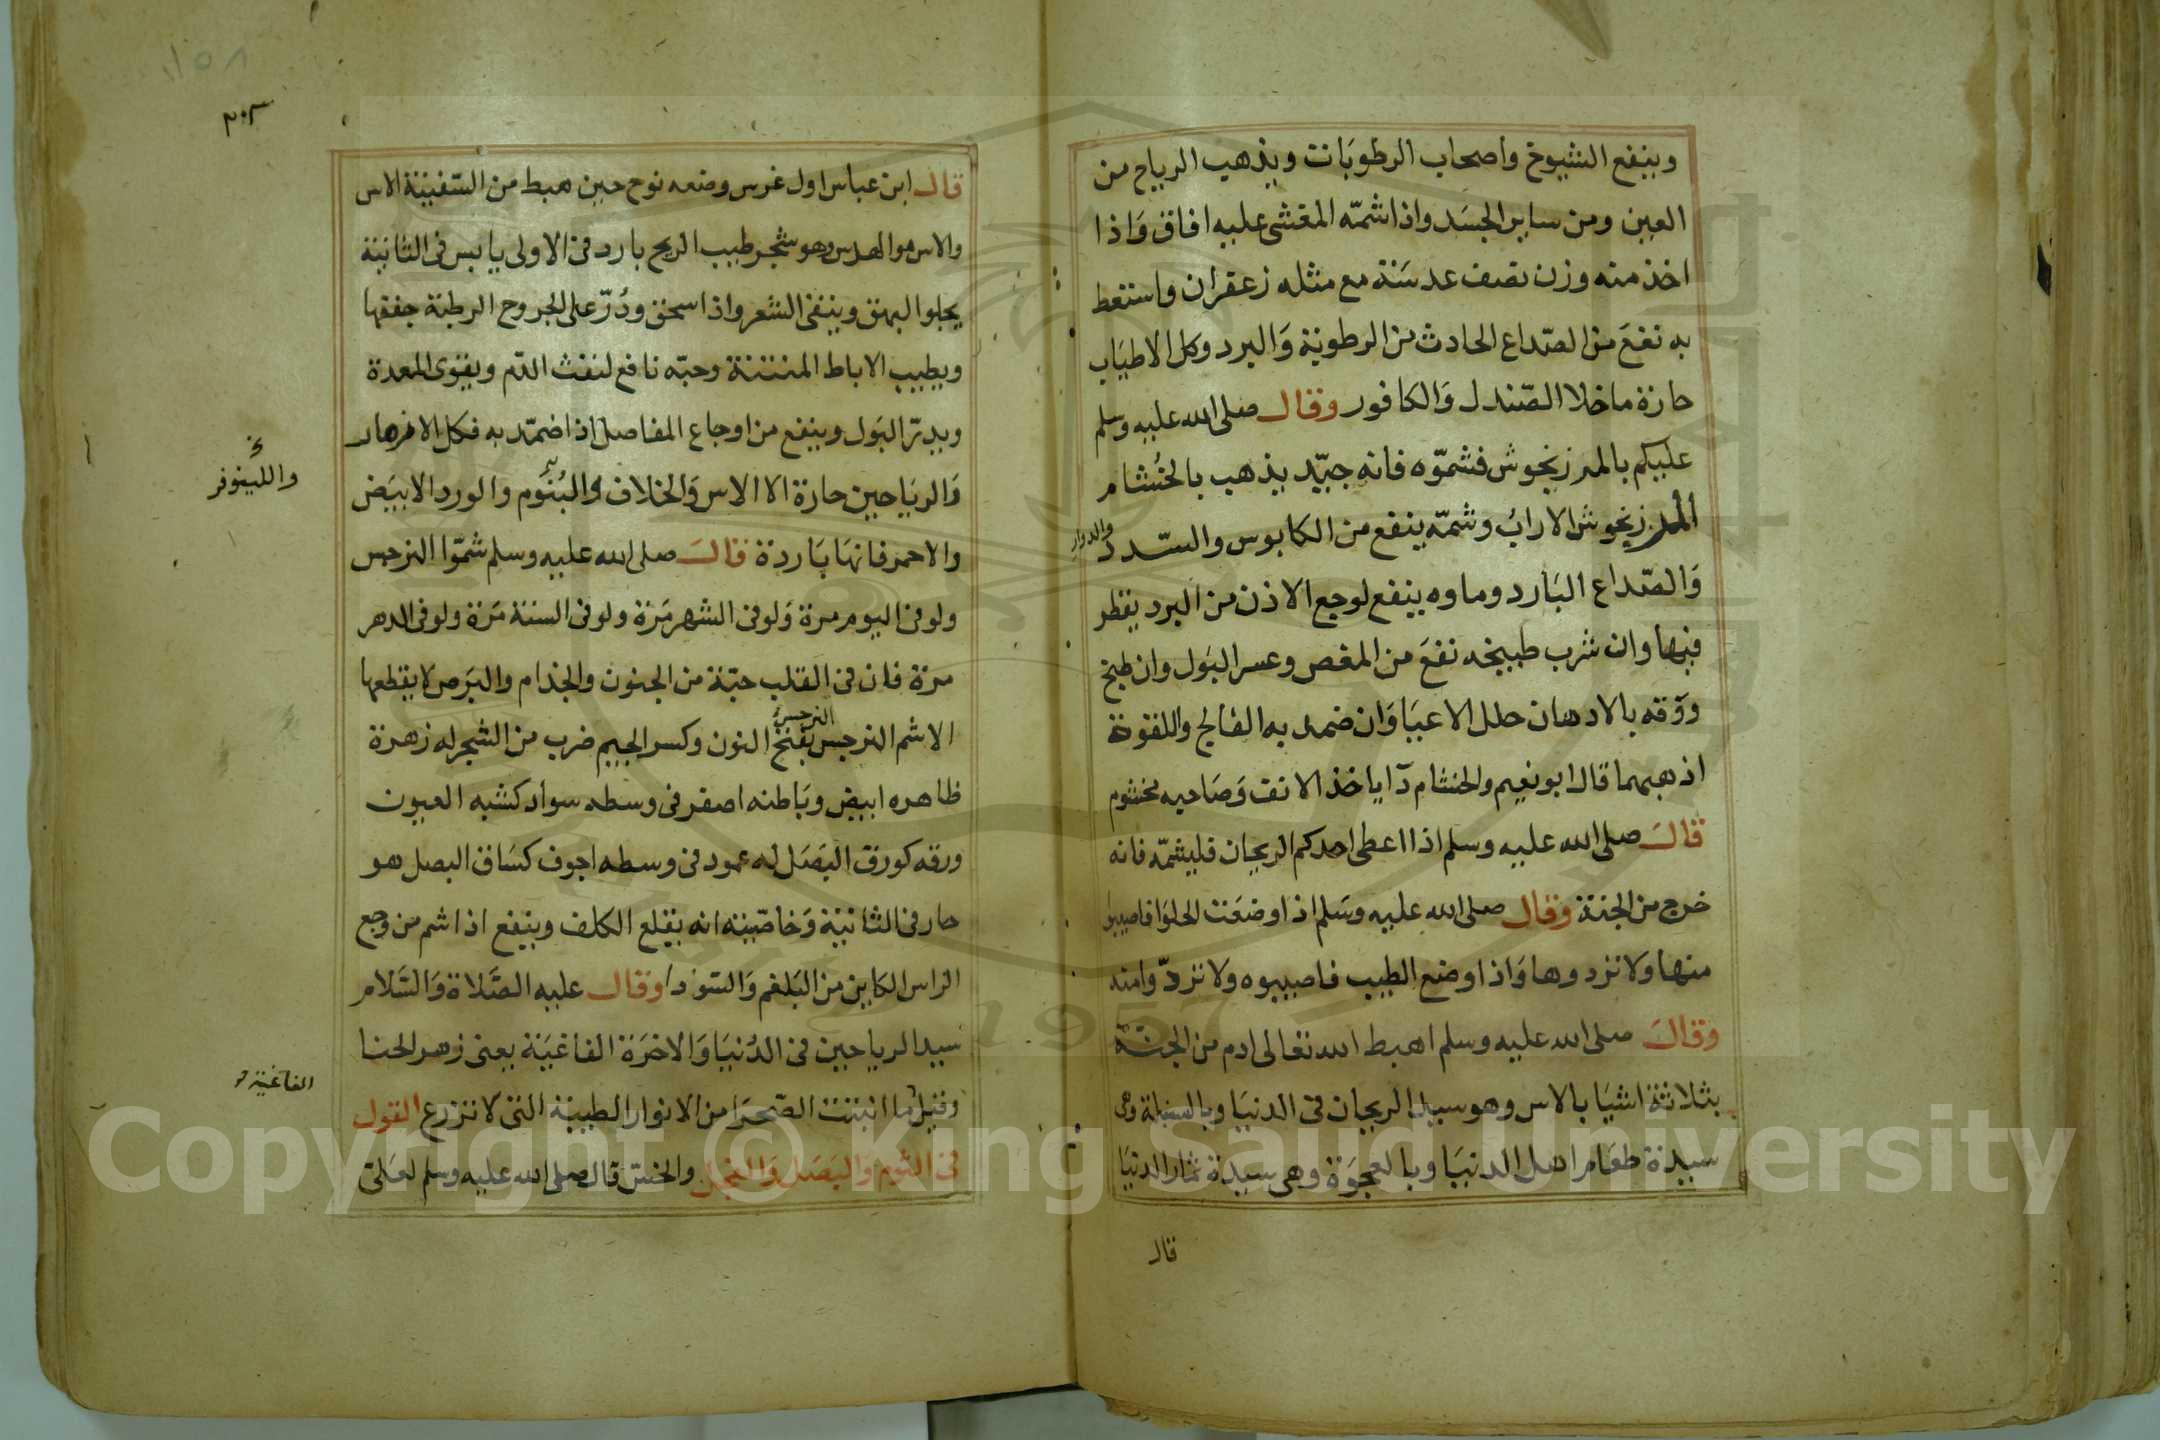 وينفع الشيوخ واصحاب الرطوبات ويذهب الرياح من
العين ومن ساير الجسد واذا شمه المغشى عليه افاق واذا
اخذ منه وزن نصف عدسة مع مثله زعفران واستعط
به نفع من الصداع الحادث من الرطوبة والبرد وكل الاطياب
حارة ما خلا الصندل والكافور وقال صلى الله عليه وسلم
عليكم بالمرزنجوش فشموه فانه جيد يذهب بالخشام
المرزنجوش الاراب وشمه ينفع من الكابوس والسدد
والدوار
والصداع البارد وماوه ينفع لوجع الاذن من البرد يقطر
فيها وان شرب طبيخه نفع من المغص وعسر البول وان طبخ
ورقه بالادهان حلل الاعيا وان ضمد به الفالج واللقوة
اذهبهما قال ابو نعيم والخشام دآ ياخذ الانف وصاحبه مخشوم
قال صلى الله عليه وسلم اذا اعطى احدكم الريحان فليشمه فانه
خرج من الجنة وقال صلى الله عليه وسلم اذا وضعت الحلوا فاصيبوا
منها ولا تردوها واذا وضع الطيب فاصيبوه ولا تردوا منه
وقال صلى الله عليه وسلم اهبط الله تعالى ادم من الجنة
بثلاثة اشيا بالاس وهو سيد الريحان فى الدنيا وبالسنبلة وهى
سيدة طعام اهل الدنيا وبالعجوة وهى سيدة ثمار الدنيا
قال
١٥٨
٣٠٢
قال ابن عباس اول غرس وضعه نوح حين هبط من السفينة الاس
والاس هو الهدس وهو شجر طيب الريح بارد فى الاولى يابس فى الثانية
يجلوا البهق وينقى الشعر واذا سحق وذر على الجروح الرطبة جففها
ويطيب الاباط المنتنة وحبه نافع لنفث الدم ويقوى المعدة
ويدر البول وينفع من اوجاع المفاصل اذا ضمد به فكل الازهار
والرياحين حارة الا الاس والخلاف والورد الابيض
واللينوفر
والاحمر فانها باردة قال صلى الله عليه وسلم شموا النرجس
ولو فى اليوم مرة ولو فى الشهر مرة ولو فى السنة مرة ولو فى الدهر
مرة فان فى القلب حبة من الجنون والجذام والبرص لا يقطعها
الا شم النرجس النرجس بفتح النون وكسر الجيم ضرب من الشجر له زهرة
ظاهره ابيض وباطنه اصفر فى وسطه سواد كشبه العيون
ورقه كورق البصل له عمود فى وسطه اجوف كساق البصل هو
حار فى الثانية وخاصيته انه يقلع الكلف وينفع اذا شم من وجع
الراس الكاين من البلغم والسودا وقال عليه الصلاة والسلام
سيد الرياحين فى الدنيا والاخرة الفاغية يعنى زهر الحنا
الفاغية
وقيل ما انبتت الصحرا من الانوار الطيبة التى لا تزرع القول
فى الثوم والبصل والفجل والخس قال صلى الله عليه وسلم لعلى
Copyright © King Saud University